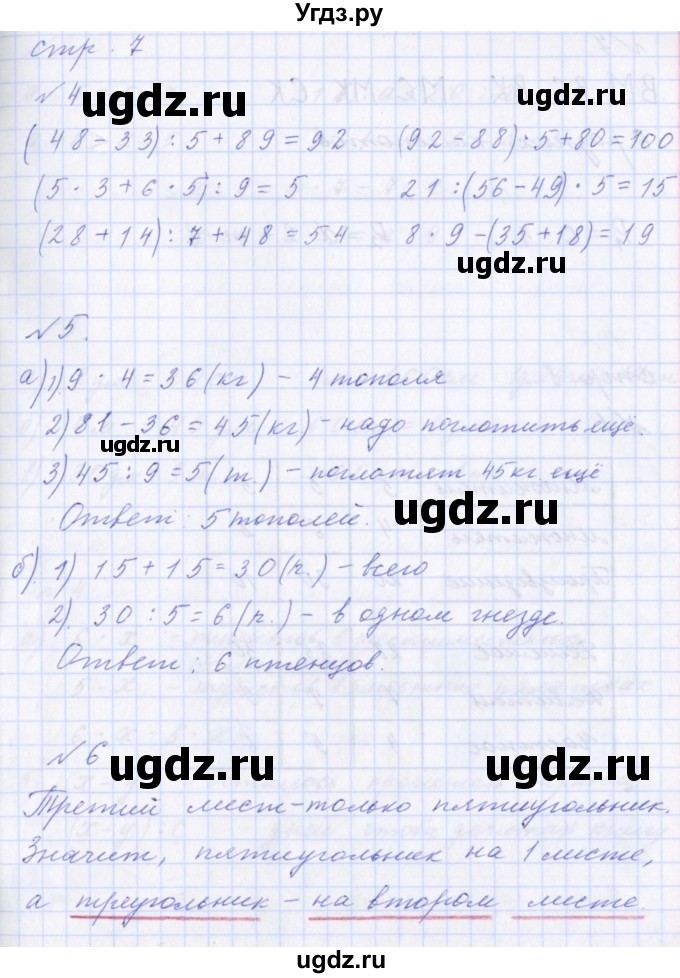 Угдз.ру
стр. 7
№4
(48-33):5+89=92 (92-88)·5+80=100
(5·3+6·5):9=5 21:(56-49)·5=15
(28+14):7+48=54 8·9-(35+18)=19
№5.
а) 1) 9·4=36(кг) - 4 тополя
2) 81-36=45(кг) - надо поглотить ещё.
3) 45:9=5(т.) - поглотят 45кг ещё
Ответ: 5 тополей.
б). 1) 15+15=30(п.) - всего
2). 30:5=6(п.) - в одном гнезде.
Ответ: 6 птенцов.
№6
Третий лист-только пятиугольник.
Значит, пятиугольник на 1 листе,
а треугольник - на втором листе.
ugdz.ru
ugdz.ru
ugdz.ru
ugdz.ru
ugdz.ru
ugdz.ru
ugdz.ru
ugdz.ru
ugdz.ru
ugdz.ru
ugdz.ru
ugdz.ru
ugdz.ru